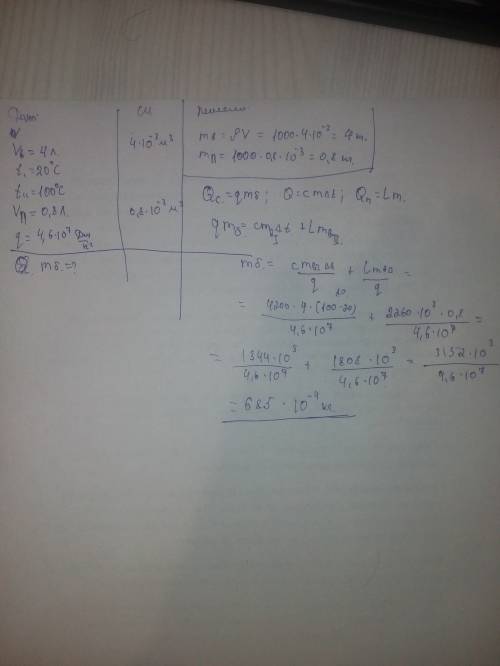 Дано:
V₆ = 4 л.
t₁ = 20°C
t₂ = 100°C
Vп = 0,8 л.
q = 4,6·10⁷ Дж/кг
mб = ?
СИ
4·10⁻³ м³
0,8·10⁻³ м³
Решение
mв = ρV = 1000·4·10⁻³ = 4 кг.
mп = 1000·0,8·10⁻³ = 0,8 кг.
Qс = qmб; Q = cmΔt; Qп = Lm.
qmб = cmвΔt + Lmп
mб = cmвΔt/q + Lmп/q =
= 4200·4·(100-20)/4,6·10⁷ + 2260·10³·0,8/4,6·10⁷ =
= 1344·10³/4,6·10⁷ + 1808·10³/4,6·10⁷ = 3152·10³/4,6·10⁷
= 685·10⁻⁴ кг